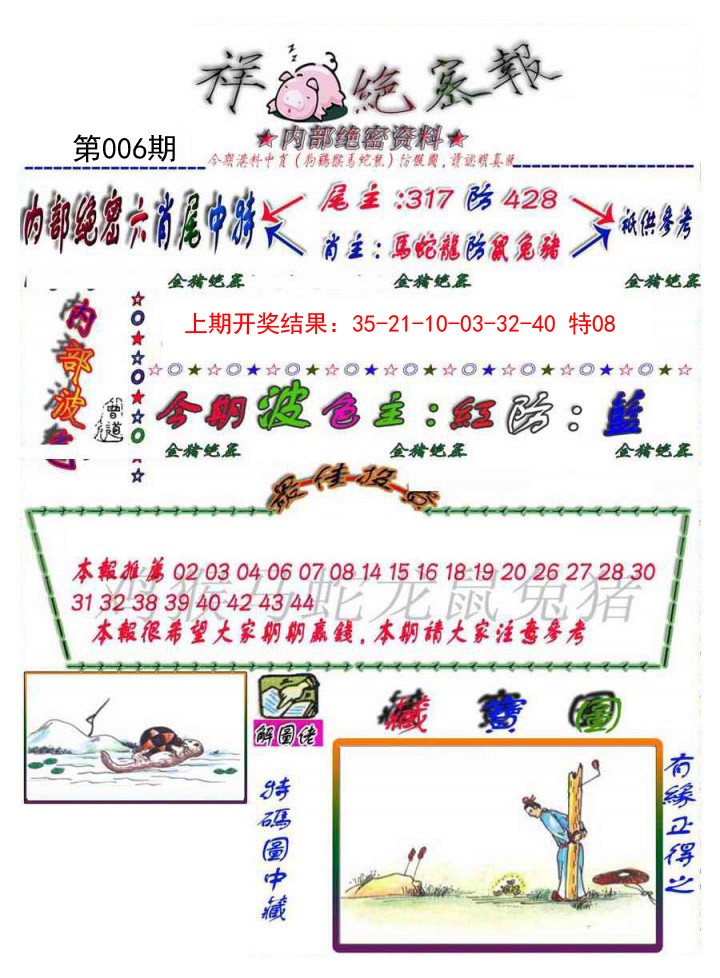 祥 絶密報
★内部绝密资料★
第006期
今期港料中肖(狗鷄猴馬蛇鼠)防猴園,請認明真版
内部绝密六肖尾中特
尾主:317防428
肖主:馬蛇龍防鼠兔豬
祇供參考
金猪绝密 金猪绝密
内部波色
上期开奖结果: 35-21-10-03-32-40 特08
曾道
今期波色主:紅防:藍
金猪绝密 金猪绝密 金猪绝密
最佳投资
本報推薦 02 03 04 06 07 08 14 15 16 18 19 20 26 27 28 30
31 32 38 39 40 42 43 44
鸡猴马蛇龙鼠兔猪
本報很希望大家期期赢錢,本期請大家注意參考
解圖佬
藏寶圖
特碼圖中藏
有緣正得之